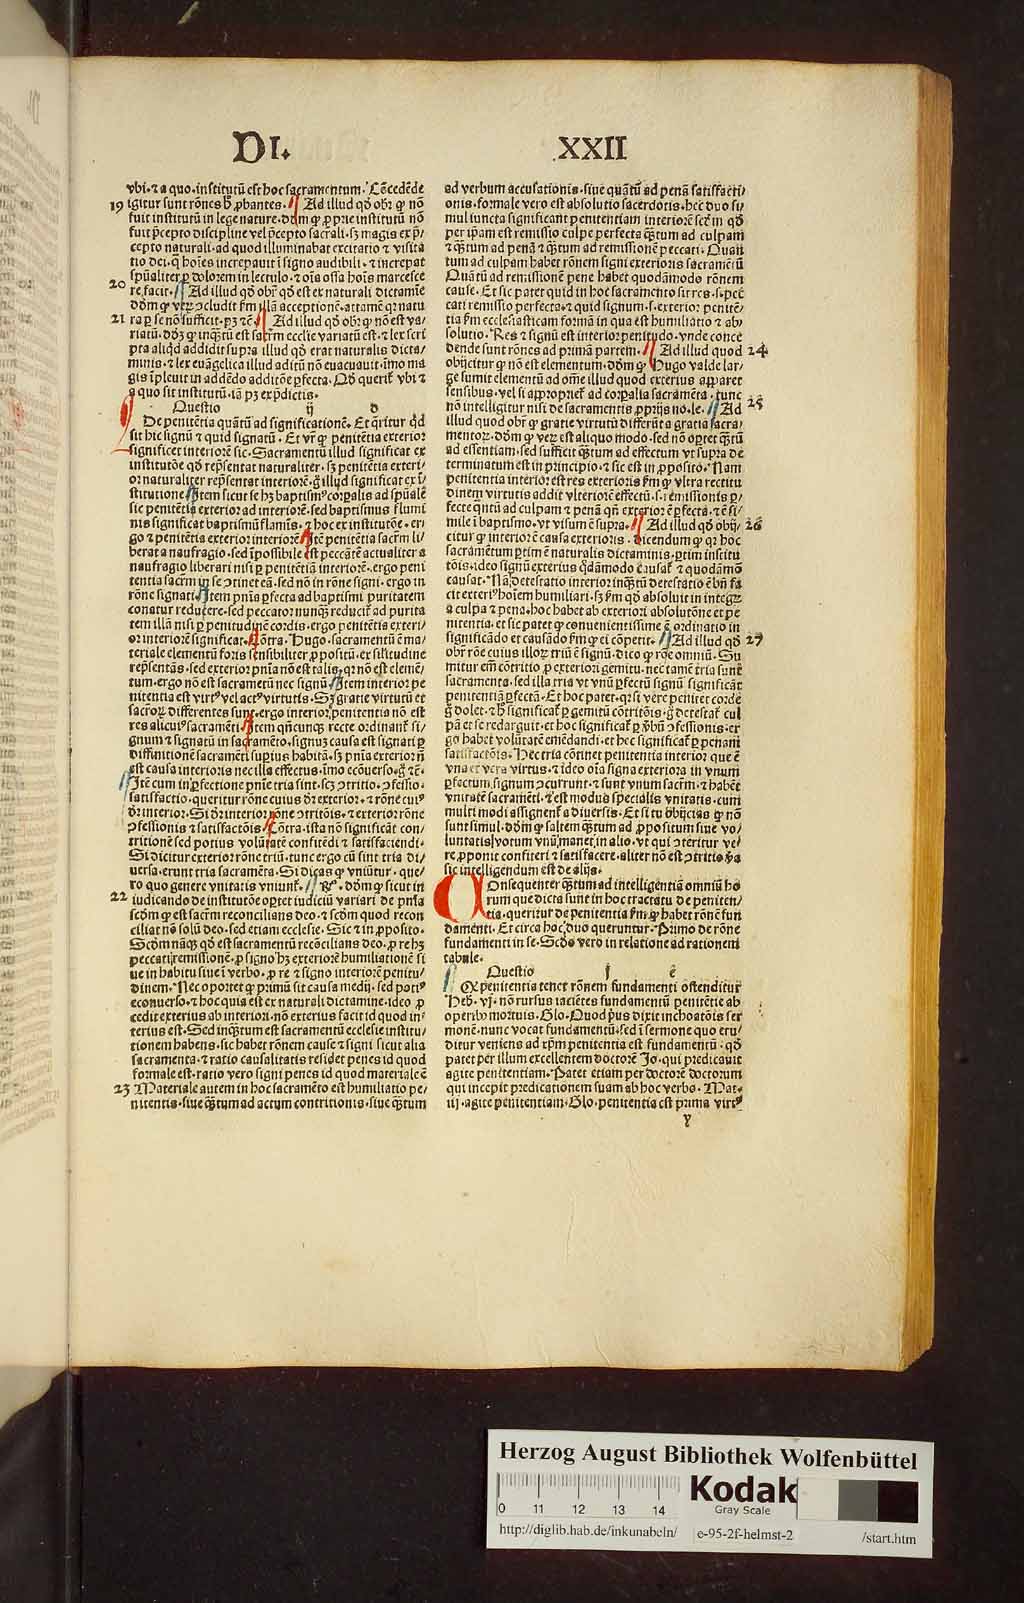 DI. XXII
vbi ⁊ a quo institutū est hoc sacramentum. Cōcedēde
19 igitur sunt rōnes
Ad illud qđ obr̄ ꝙ nō
fuit institutū in lege nature. dōm ꝙ ꝓprie institutū nō
fuit p̄cepto discipline vel p̄cepto sacrali. sꝫ magis
cepto naturali. ad quod illuminabat excitatio ⁊ visita
tio dei. hoīes increpauit signo audibili. ⁊ increpat
spūaliter ꝑ dolorem in lectulo. ⁊ oīa ossa hoīs marcesce
20 re facit. Ad illud qđ obr̄ qđ est ex naturali dictamīe
21 ra per se nō sufficit. Ad illud qđ obr̄ ꝙ nō est va/
riatū. ecclie variatū est. ⁊ lex scri
pta aliqđ addidit supra illud qđ erat naturalis dicta/
minis. ⁊ lex euāgelica illud aditū nō euacuauit. īmo ma
gis īpleuit in addēdo additōe ꝑfecta. Qđ querit̄ vbi ⁊
a quo sit institutū. iā pꝫ ex p̄dictis.
Questio ij d
De penitētia quātū ad significationē. Et q̄ritur qđ
sit hic signū ⁊ quid signatū. Et vr̄ ꝙ penitētia exterior
significet interiorē sic. Sacramentū illud significat ex
institutōe qđ rep̄sentat naturaliter. sꝫ penitētia exteri/
or naturaliter rep̄sentat interiorē. illud significat ex ī/
stitutione. Item sicut se hꝫ baptismꝰ corꝑalis ad spūalē
sic penitētia exterior ad interiorē. sed baptismus flumi
nis significat baptismū flamis. ⁊ hoc ex institutōe. er/
go ⁊ penitētia exterior interiorē. Itē penitētia sacrm̄ li/
berat a naufragio. sed īpossibile est peccātē actualiter a
naufragio liberari nisi ꝑ penitētiā interiorē. ergo peni
tentia sacrm̄ in se ↄtinet eā. sed nō in rōne signi. ergo in
rōne signati. Item pnīa ꝑfecta ad baptismi puritatem
conatur reducere. sed peccator nunqͣ reducit̄ ad purita
tem illā nisi ꝑ penitudinē cordis. ergo penitētia exteri/
or interiorē significat. Cōtra. Hugo. sacramentū ē ma/
teriale elementū foris sensibiliter ꝓpositū. ex silitudine
rep̄sentās. sed exterior pnīa nō est talis. qꝛ nō est elemē/
tum. ergo nō est sacrametū nec signū. Item interior pe
nitentia est virtꝰ vel actꝰ virtutis. Sꝫ gratie virtutū et
sacroꝝ differentes sunt. ergo interior penitentia nō est
res alicuiꝰ sacramēti. Item qn̄cunqꝫ recte ordinant̄ si/
gnum ⁊ signatū in sacramēto. signuꝫ causa est signati ꝑ
diffinitionē sacramēti superius habitā. sꝫ pnīa exterior nō
est causa interioris nec illa effectus. īmo ecōuerso.
Itē cum in ꝑfectione pnīe tria sint. scꝫ ↄtritio. ↄfessio.
satisfactio. queritur rōne cuius dr̄ exterior. ⁊ rōne cuiꝰ
dr̄ interior. Si dr̄ interior rone ↄtritōis. ⁊ exterior rōne
ↄfessionis ⁊ satisfactōis. Cōtra. ista nō significāt con/
tritionē sed potius volūtatē confitēdi ⁊ satisfaciendi.
Si dicitur exterior rōne triū. tunc ergo cū sint tria di/
uersa. erunt tria sacramēta. Si dicas ꝙ vniūtur. que/
ro quo genere vnitatis vniunt̄. dōm ꝙ sicut in
22 iudicando de institutōe oꝑtet iudiciū variari de pnīa
scd̄m ꝙ est sacrm̄ reconcilians deo. ⁊ scd̄m quod recon
ciliat nō solū deo. sed etiam ecclesie. Sic ⁊ in ꝓposito.
Scd̄m nāqꝫ qđ est sacramentū recōcilians deo. ꝓ re hꝫ
peccati remissionē. ꝓ signo hꝫ exterior humiliationē si
ue in habitu siue ī verbo. ꝓ re ⁊ signo interiorē penitu/
dinem. Nec oportet ꝙ primū sit causa medij. sed potiꝰ
econuerso. ⁊ hoc quia est ex naturali dictamine. ideo ꝓ
cedit exterius ab interiori. nō exterius facit id quod in/
terius est. Sed inqͣtum est sacramentū ecclesie institu/
tionem habens. sic habet rōnem cause ⁊ signi sicut alia
sacramenta. ⁊ ratio causalitatis residet penes id quod
formale est. ratio vero signi penes id quod materiale ē
23 Materiale autem in hoc sacramēto est humiliatio pe/
nitentis. siue qͣtum ad actum contritionis. siue qͣtum
ad verbum accusationis. siue quātū ad penā satisfacti/
onis. formale vero est absolutio sacerdotis. hec duo si/
mul iuncta significant penitentiam interiorē scꝫ in qđ
per ip̄am est remissio culpe perfecta qͣtum ad culpam
⁊ qͣtum ad penā ⁊ qͣtum ad remissionē peccati. Quan
tum ad culpam habet rōnem signi exterioris sacramētū
Quātū ad remissionē pene habet quodāmodo rōnem
cause. Et sic patet quid in hoc sacramento sit res. s. pec
cati remissio perfecta. ⁊ quid signum. s. exterior penitē/
tia ecclesiasticam formā in qua est humiliatio ⁊ ab/
solutio. Res ⁊ signū est interior penitudo. vnde conce
dende sunt rōnes ad primā partem. Ad illud quod 24
obijcitur ꝙ nō est elementum. dōm ꝙ Hugo valde lar/
ge sumit elementū ad omne illud quod exterius apparet
sensibus. vel si appropriet̄ ad corꝑalia sacramēta. tunc
nō intelligitur nisi de sacramentis ꝓprijs no. le. Ad 25
illud quod obr̄ ꝙ gratie virtutū differūt a gratia sacra/
mentoꝝ. dōm ꝙ est aliquo modo. sed nō oꝑtet qͣtū
ad essentiam. sed sufficit qͣtum ad effectum vt supra de
terminatum est in principio. ⁊ sic est in ꝓposito. Nam
penitentia interior est res exterioris ꝙ vltra rectitu
dinem virtutis addit vlteriorē effectū. s. remissionis ꝑ/
fecte qͣntū ad culpam ⁊ penā qn̄ exterior ē ꝑfecta. ⁊ ē si/
mile ī baptismo. vt visum ē supra. Ad illud qđ obij/ 26
citur ꝙ interiorē causa exterioris. dicendum ꝙ qꝛ hoc
sacramētum ꝑtim ē naturalis dictaminis. ꝑtim institu
tōis. ideo signū exterius qđāmodo causat̄ ⁊ quodāmō
causat. Nā detestatio interior inqͣtū detestatio ē hꝫ fa
cit exteriꝰ hoīem humiliari. sꝫ ꝙ absoluit in integꝝ
a culpa ⁊ pena. hoc habet ab exteriori absolutōne et pe
nitentia. et sic patet ꝙ conuenientissime ē ordinatio in
significādo et causādo ꝙ ei cōpetit. Ad illud qđ 27
obr̄ rōe cuius illoꝝ triū ē signū. dico ꝙ rōe omniū. Su
mitur em̄ cōtritio ꝓ exteriori gemitu. nec tamē tria sunt
sacramenta. sed illa tria vt vnū ꝑfectū signū significāt
penitentiā ꝑfectā. Et hoc patet. qꝛ si vere penitet corde
dolet. ⁊ significat̄ ꝑ gemitū cōtritōis. detestat̄ cul
pā et se redarguit. et hoc significat̄ ꝑ ↄfessionis. er
go habet volūtatē emēdandi. et hec significat̄ ꝑ penam
satisfactōis. Hec tria cōtinet penitentia interior que ē
vna et vera virtus. ⁊ ideo oīa signa exteriora in vnum
ꝑfectum signum ↄcurrunt. ⁊ sunt vnum sacrm̄. ⁊ habēt
vnitatē sacramēti. ⁊ est modus specialis vnitatis. cum
multi modi assignent̄ a diuersis. Et si tu obijcias ꝙ nō
sunt simul. dōm ꝙ saltem qͣtum ad ꝓpositum siue vo/
luntatis votum vnū manet in alio. vt qui ↄteritur ve/
re ꝓponit confiteri ⁊ satisfacere. aliter nō est ↄtritio
sic intelligendum est de alijs.
Consequenter qͣtum ad intelligentiā omniū ho
rum que dicta sunt in hoc tractatu de peniten/
tia. queritur de penitentia ꝙ habet rōnē fun
damenti. Et circa hoc duo queruntur. Primo de rōne
fundamenti in se. Scd̄o vero in relatione ad rationem
tabule.
Questio j e
Qꝙ penitentia tenet rōnem fundamenti ostenditur
Heb. vj. nō rursus iaciētes fundamentū penitētie ab
operibꝰ mortuis. Glo. Quod prius dixit inchoatōis ser
monē. nunc vocat fundamentū. sed ī sermone quo eru/
ditur veniens ad xp̄m penitentia est fundamentū. qđ
patet per illum excellentem doctorē Jo. qui predicauit
agite penitentiam. Patet etiam per doctorē doctorum
qui incepit predicationem suam ab hoc verbo. Mat.
iij. agite penitentiam. Glo. penitentia est prima virtꝰ
y
Herzog August Bibliothek Wolfenbüttel
Kodak
Gray Scale
0 11 12 13 14
http://diglib.hab.de/inkunabeln/ e-95-2f-helmst-2 /start.htm